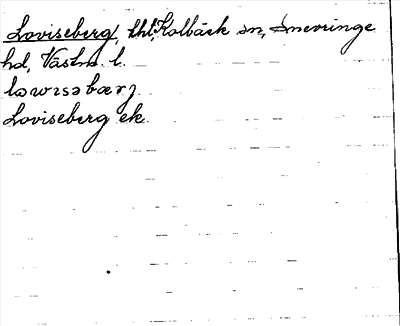 Loviseberg, lht, Kolbäck sn, Snevringe
hd, Västm. l.
lɔwɪsəbærj
Loviseberg ek.